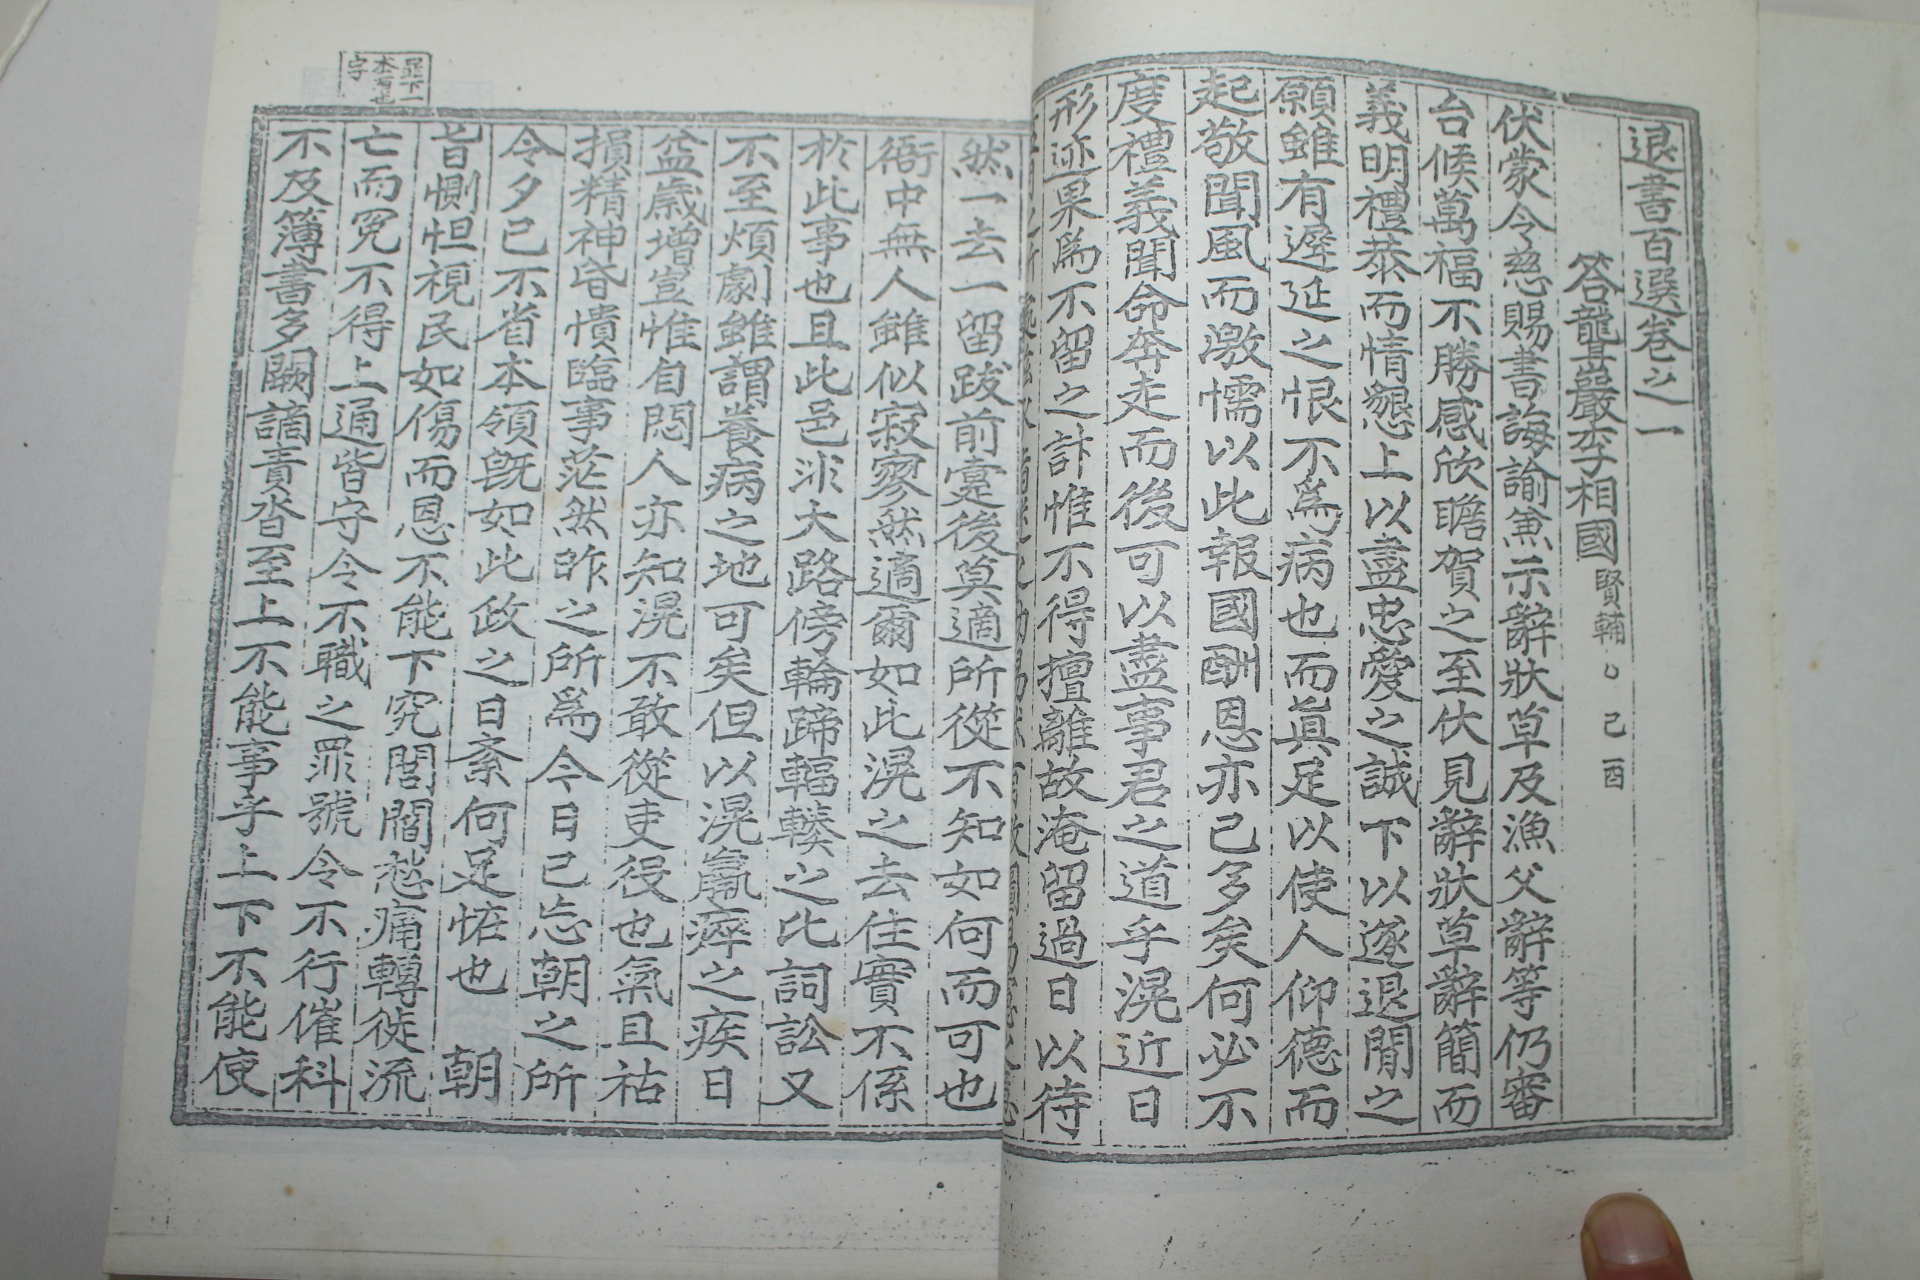 退書百選卷之一
答龍巖李相國賢輔○己酉
伏蒙令慈賜書誨諭兼示辭狀草及漁父辭等仍審
台候萬福不勝感欣瞻賀之至伏見辭狀草辭簡而
義明禮恭而情懇上以盡忠愛之誠下以遂退閒之
願雖有遲延之恨不爲病也而眞足以使人仰德而
起敬聞風而激懦以此報國酬恩亦已多矣何必不
度禮義聞命奔走而後可以盡事君之道乎滉近日
形迹果爲不留之計惟不得擅離故淹留過日以待
然一去一留跋前疐後莫適所從不知如何而可也
衙中無人雖似寂寥然適爾如此滉之去住實不係
於此事也且此邑氷大路傍輪蹄輻輳之比詞訟又
不至煩劇雖謂養病之地可矣但以滉羸瘁之疾日
益歲增豈惟自悶人亦知滉不敢從吏役也氣且祜
損精神昏憒臨事茫然昨之所爲今日已忘朝之所
令夕已不省本領旣如此政之日紊何足恠也 朝
旨惻怛視民如傷而恩不能下究閭閻愁痛轉徙流
亡而冤不得上通皆守令不職之罪號令不行催科
不及簿書多闕謫責沓至上不能事乎上下不能使
昆下一
本有也
字